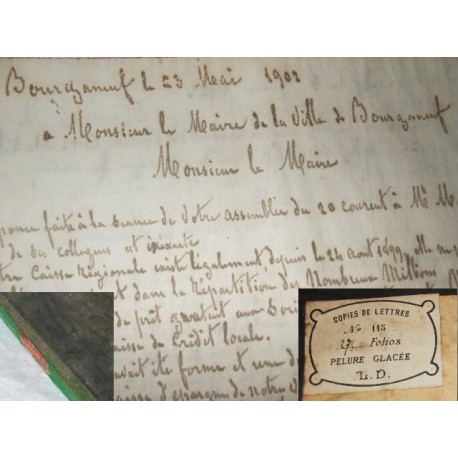 Bourganeuf le 23 Mai 1902
a Monsieur le Maire de la Ville de Bourganeuf
Monsieur le Maire
ponse faite à la seance de Votre assemblée du 20 courent à Mr M.
de ses collegues est inexacte
tre Caisse Régionale existe légalement depuis le 24 aout 1899, elle
dans la répartition des Nombreux Millions
de prêt gratuit aux Soci
aisse de Crédit locale.
avait été forme et
aisse d'epargne de notre
COPIES DE LETTRES
No 113
Folios
PELURE GLACÉE
L.D.